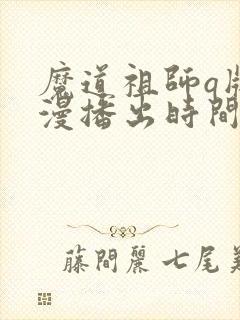 魔道祖師q版
漫播出時間
藤間麗 七尾美